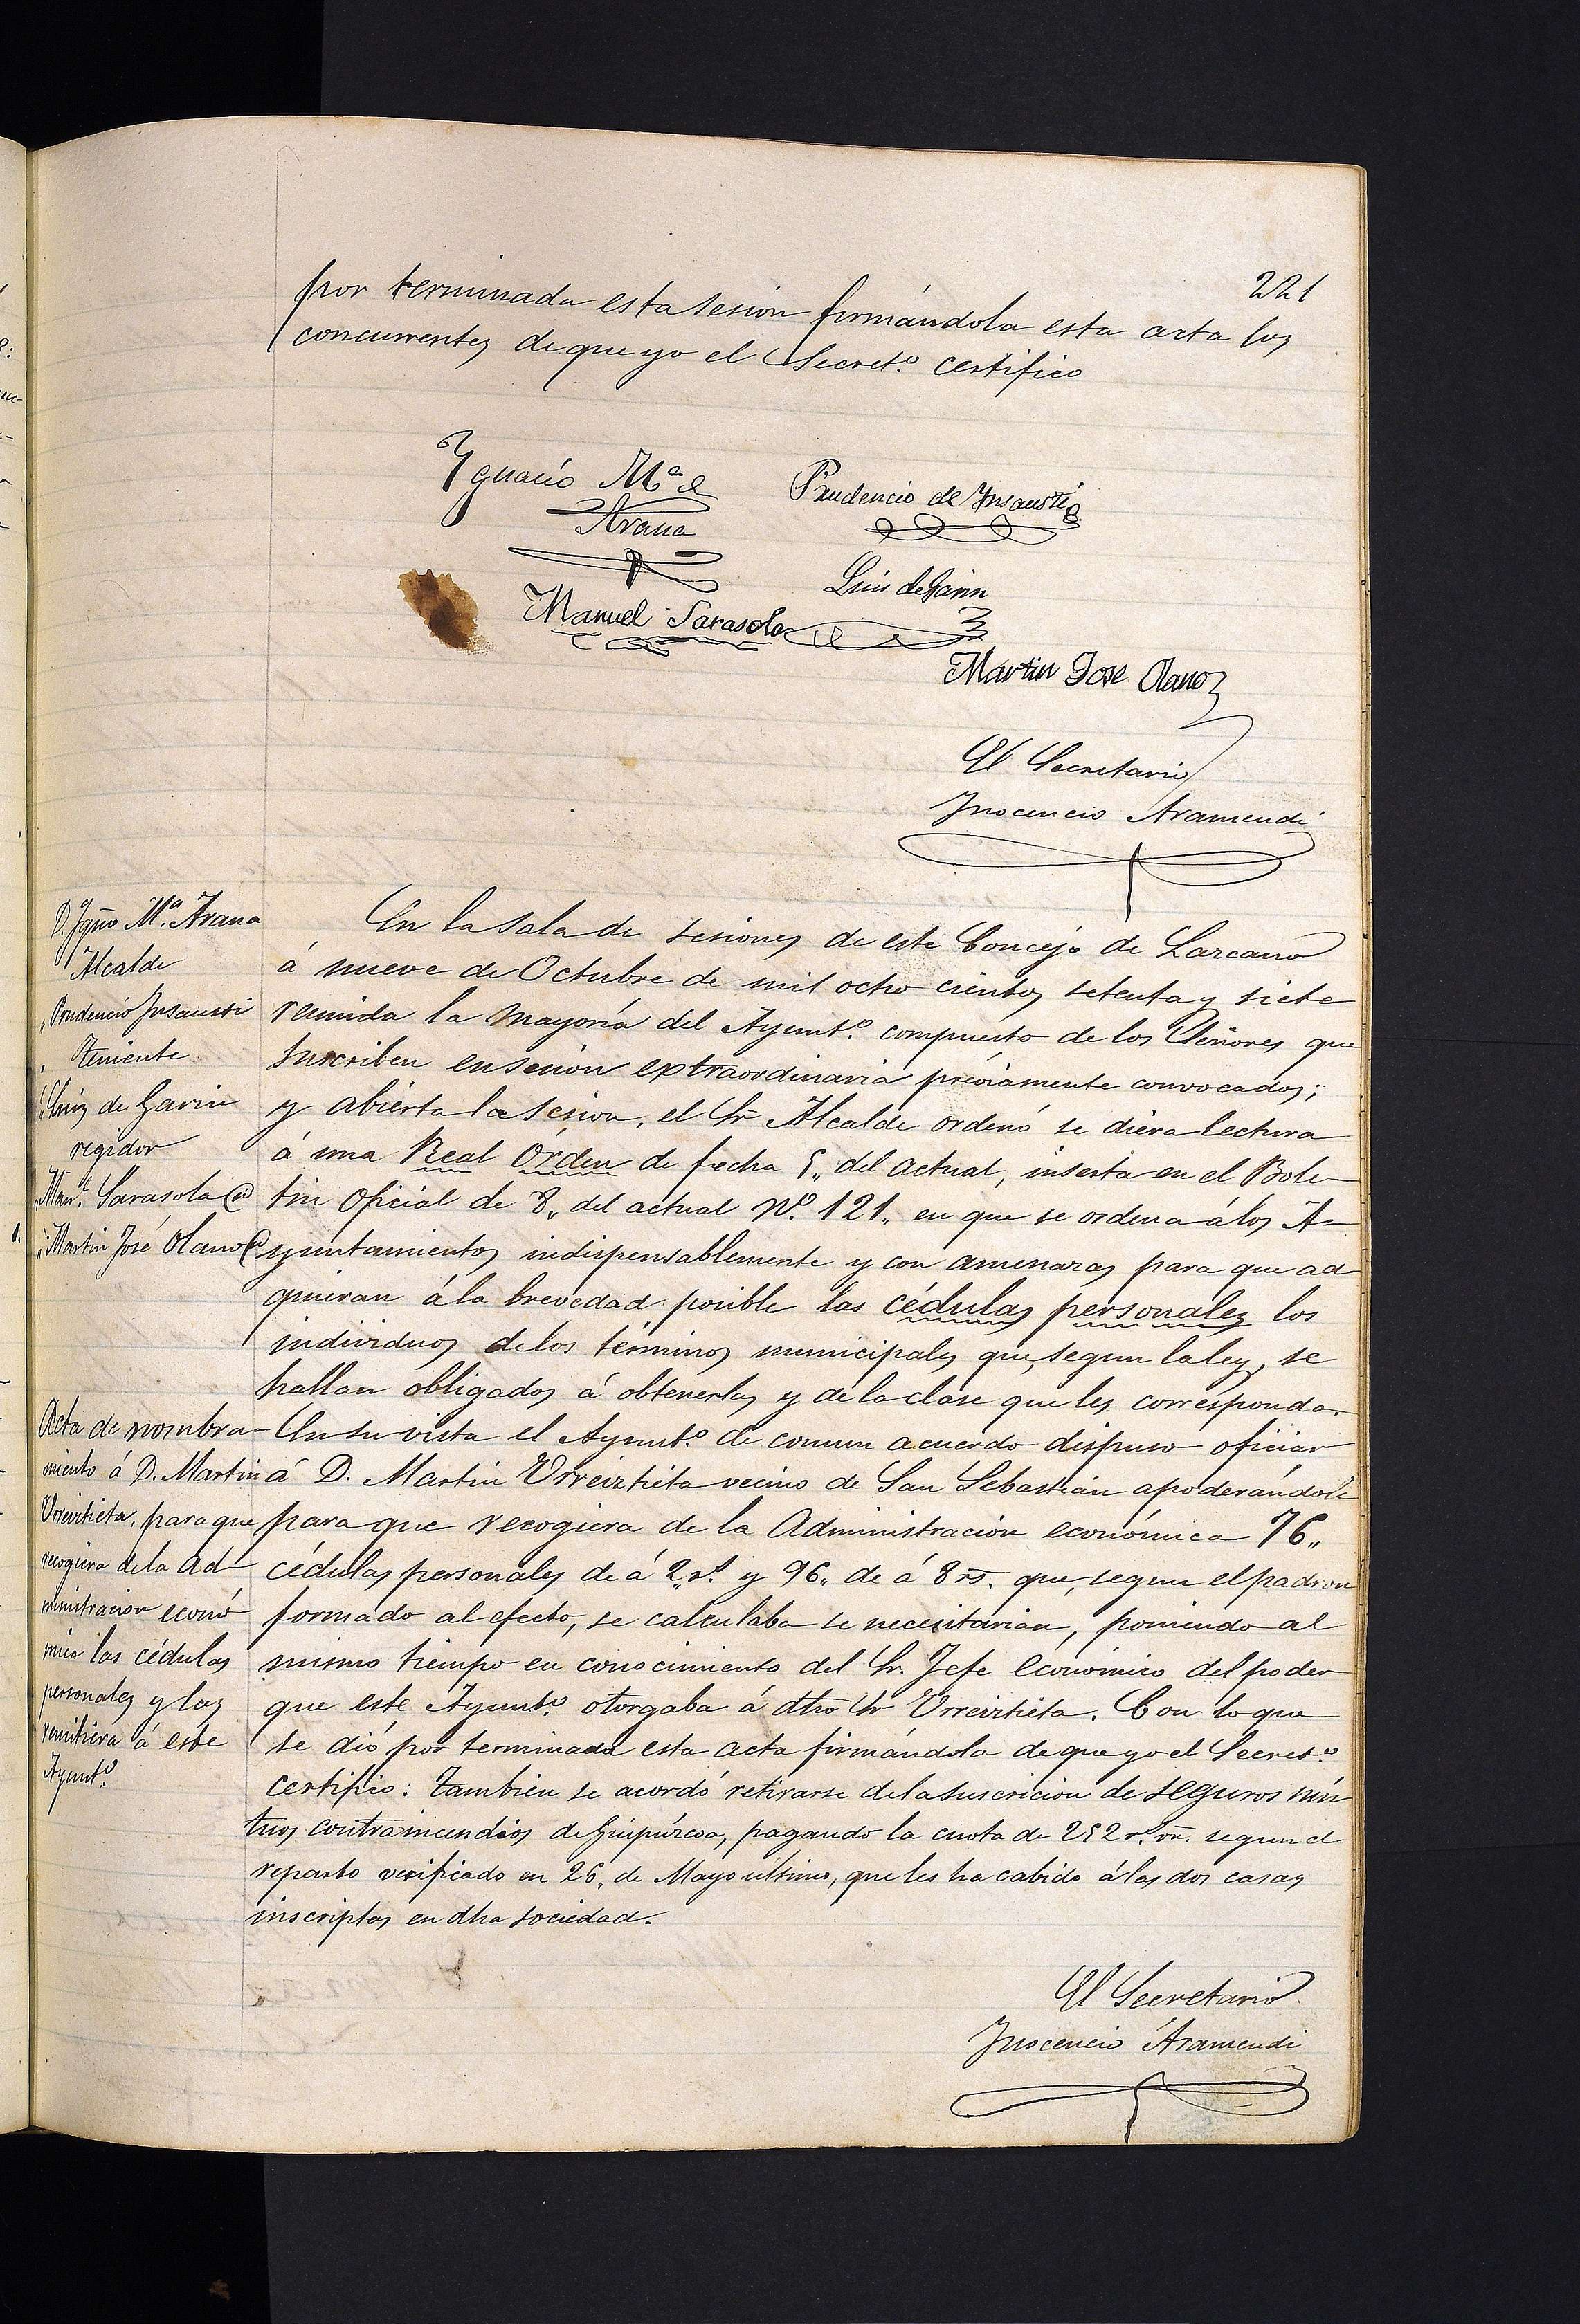 221
por terminada esta sesion firmándola esta acta los
concurrentes de que yo el Secret.º certifico
Ygnacio M.ª de
Arana
Prudencio de Insausti
Luis de Garin
Manuel Sarasola
Martin Jose Olano
El Secretario
Inocencio Aramendi
D. Ygnº M.ª Arana
Alcalde
Prudencio Insausti
teniente
Luis de Garin
regidor
Man.l Sarasola id
Martin José Olano id
En la sala de sesiones de este Concejo de Lazcano
á nueve de Octubre de mil ocho cientos setenta y siete
reunida la mayoría del Ayunt.º compuesto de los Señores que
suscriben en sesion extraordinaria préviamente convocados;
y abierta la sesion, el Sr. Alcalde ordenó se diera lectura
á una Real Orden de fecha 5,, del actual, inserta en el Bole-
tin Oficial de 8,, del actual Nº. 121,, en que se ordena á los A-
yuntamientos indispensablemente y con amenazas para que ad
quieran á la brevedad posible las cédulas personales los
individuos de los términos municipales que, segun la ley, se
hallan obligados á obtenerlas y de la clase que les corresponda.
En su vista el Ayunt.º de comun acuerdo dispuso oficiar
á D. Martin Urreiztieta vecino de San Sebastian apoderándole
para que recogiera de la Administracion económica 76,,
cédulas personales de á 2,, rs. y 96,, de á 8 rs. que, segun el padron
formado al efecto, se calculaba se necesitarian, poniendo al
mismo tiempo en conocimiento del Sr. Jefe económico del poder
que este Ayunt.º otorgaba á dho Sr Urreiztieta. Con lo que
se dió por terminada esta acta firmándola de que yo el Secret.º
certifico: tambien se acordó retirarse de la suscricion de seguros mú
tuos contra incendios de Guipúzcoa, pagando la cuota de 252 r.s vn. segun el
reparto verificado en 26,, de Mayo último, que les ha cabido á las dos casas
inscriptas en dha sociedad.
Acta de nombra-
miento á D. Martin
Urreiztieta, para que
recogiera de la Ad-
ministracion econó
mica las cédulas
personales y las
remitiera á este
Ayunt.º
El Secretario
Inocencio Aramendi